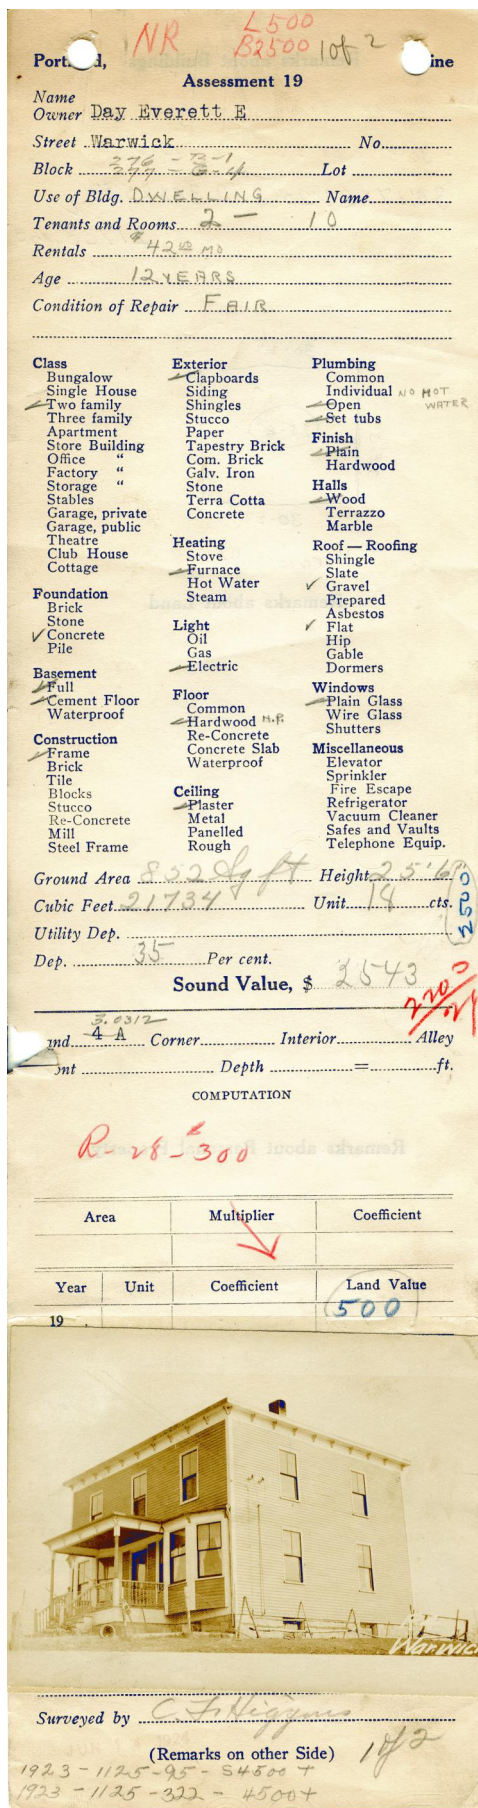 NR L500
B2500 1 of 2
Portland, Maine
Assessment 19
Name
Owner Day Everett E
Street Warwick No.
Block 276 - B-1 Lot
277 - G-4
Use of Bldg. DWELLING Name
Tenants and Rooms 2 - 10
Rentals $42.00 MO
Age 12 YEARS
Condition of Repair FAIR
Class
Bungalow
Single House
Two family
Three family
Apartment
Store Building
Office "
Factory "
Storage "
Stables
Garage, private
Garage, public
Theatre
Club House
Cottage
Foundation
Brick
Stone
Concrete
Pile
Basement
Full
Cement Floor
Waterproof
Construction
Frame
Brick
Tile
Blocks
Stucco
Re-Concrete
Mill
Steel Frame
Exterior
Clapboards
Siding
Shingles
Stucco
Paper
Tapestry Brick
Com. Brick
Galv. Iron
Stone
Terra Cotta
Concrete
Heating
Stove
Furnace
Hot Water
Steam
Light
Oil
Gas
Electric
Floor
Common
Hardwood H.P.
Re-Concrete
Concrete Slab
Waterproof
Ceiling
Plaster
Metal
Panelled
Rough
Plumbing
Common
Individual NO HOT
Open WATER
Set tubs
Finish
Plain
Hardwood
Halls
Wood
Terrazzo
Marble
Roof — Roofing
Shingle
Slate
Gravel
Prepared
Asbestos
Flat
Hip
Gable
Dormers
Windows
Plain Glass
Wire Glass
Shutters
Miscellaneous
Elevator
Sprinkler
Fire Escape
Refrigerator
Vacuum Cleaner
Safes and Vaults
Telephone Equip.
Ground Area 852 Sq ft Height 25'6
Cubic Feet 21734 Unit 18 cts.
2500
Utility Dep.
Dep. 35 Per cent.
Sound Value, $ 2543
2200
3.0312
4 A Corner Interior Alley
Depth = ft.
COMPUTATION
R-28-$300
Area Multiplier Coefficient
Year Unit Coefficient Land Value
19 500
Warwick
Surveyed by C. F. Higgins
(Remarks on other Side) 1 of 2
1923 - 1125 - 95 - S4500 +
1923 - 1125 - 322 - 4500+